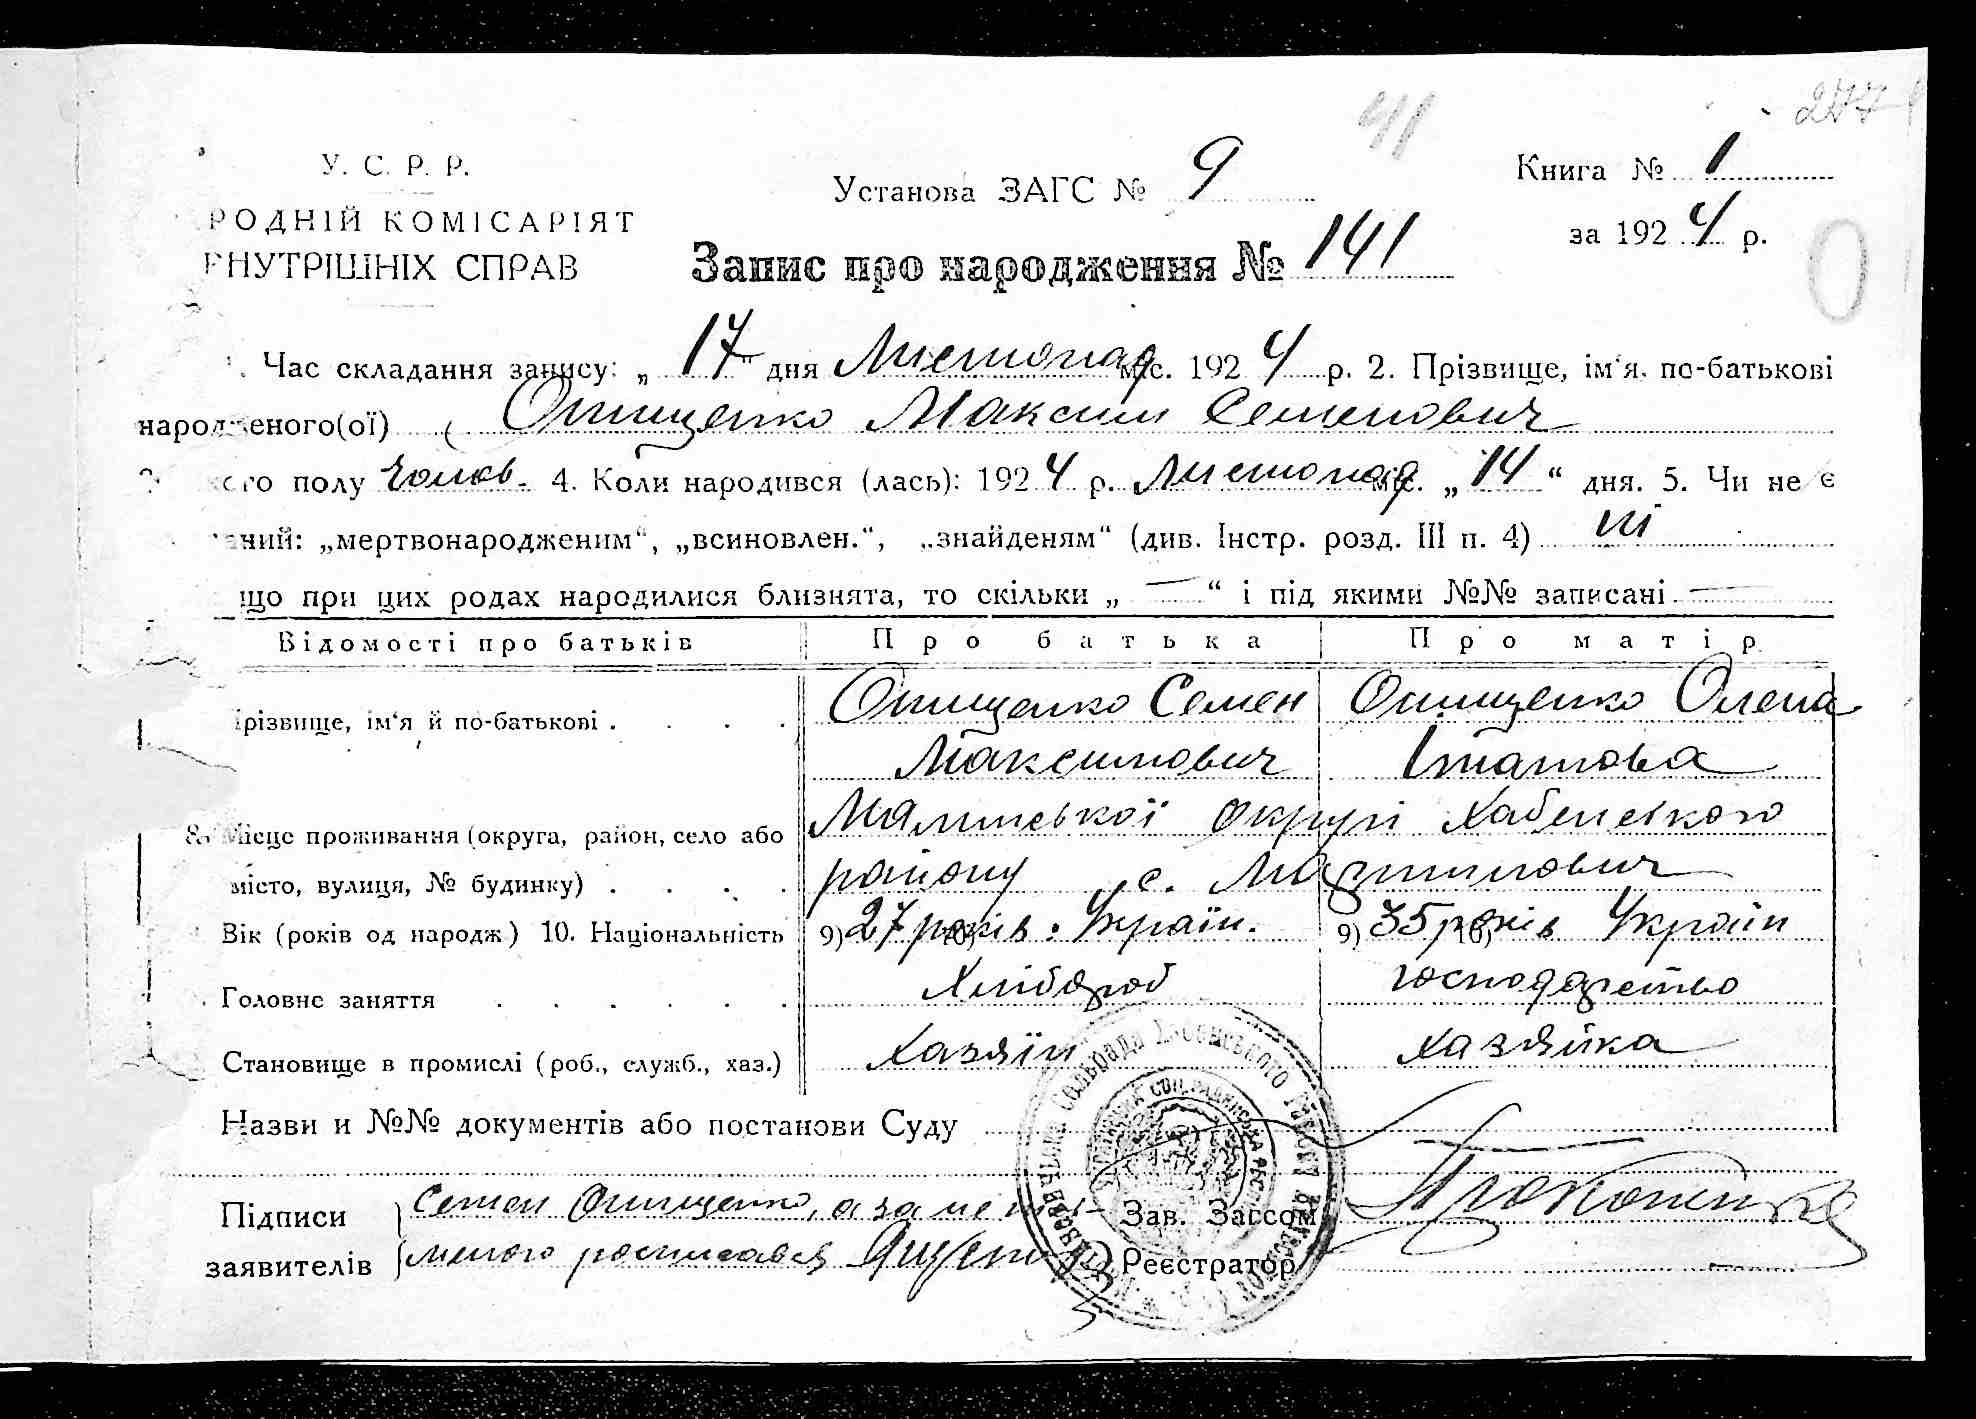 277
41
У. С. Р. Р.
РОДНІЙ КОМІСАРІЯТ
ВНУТРІШНІХ СПРАВ
Установа ЗАГС № 9
Книга № 1
за 1924 р.
Запис про народження № 141
0
Час складання запису: „17" дня Листопад міс. 1924 р. 2. Прізвище, ім'я, по-батькові
народженого(ої) Онищенко Максим Семенович
кого полу Чолов. 4. Коли народився (лась): 1924 р. Листопад міс. „14“ дня. 5. Чи не є
аний: „мертвонародженим“, „всиновлен.“, „знайденям“ (див. Інстр. розд. III п. 4) ні
що при цих родах народилися близнята, то скільки „—“ і під якими №№ записані —
Відомості про батьків Про батька Про матір
різвище, ім'я й по-батькові . . . . Онищенко Семен Онищенко Олена
Максимович Ігнатова
8. Місце проживання (округа, район, село або Малинської округи Хабенського
місто, вулиця, № будинку) . . . . району с. Мартинович
Вік (років од народж) 10. Національність 9) 27 років 10) Україн. 9) 35 років 10) Україн
Головне заняття . . . . . . Хлібороб господарство
Становище в промислі (роб., служб., хаз.) Хазяїн хазяйка
Назви и №№ документів або постанови Суду
Підписи Семен Онищенко, а за негра- Зав. Загсом
заявителів мотного росписався Ященко Реєстратор